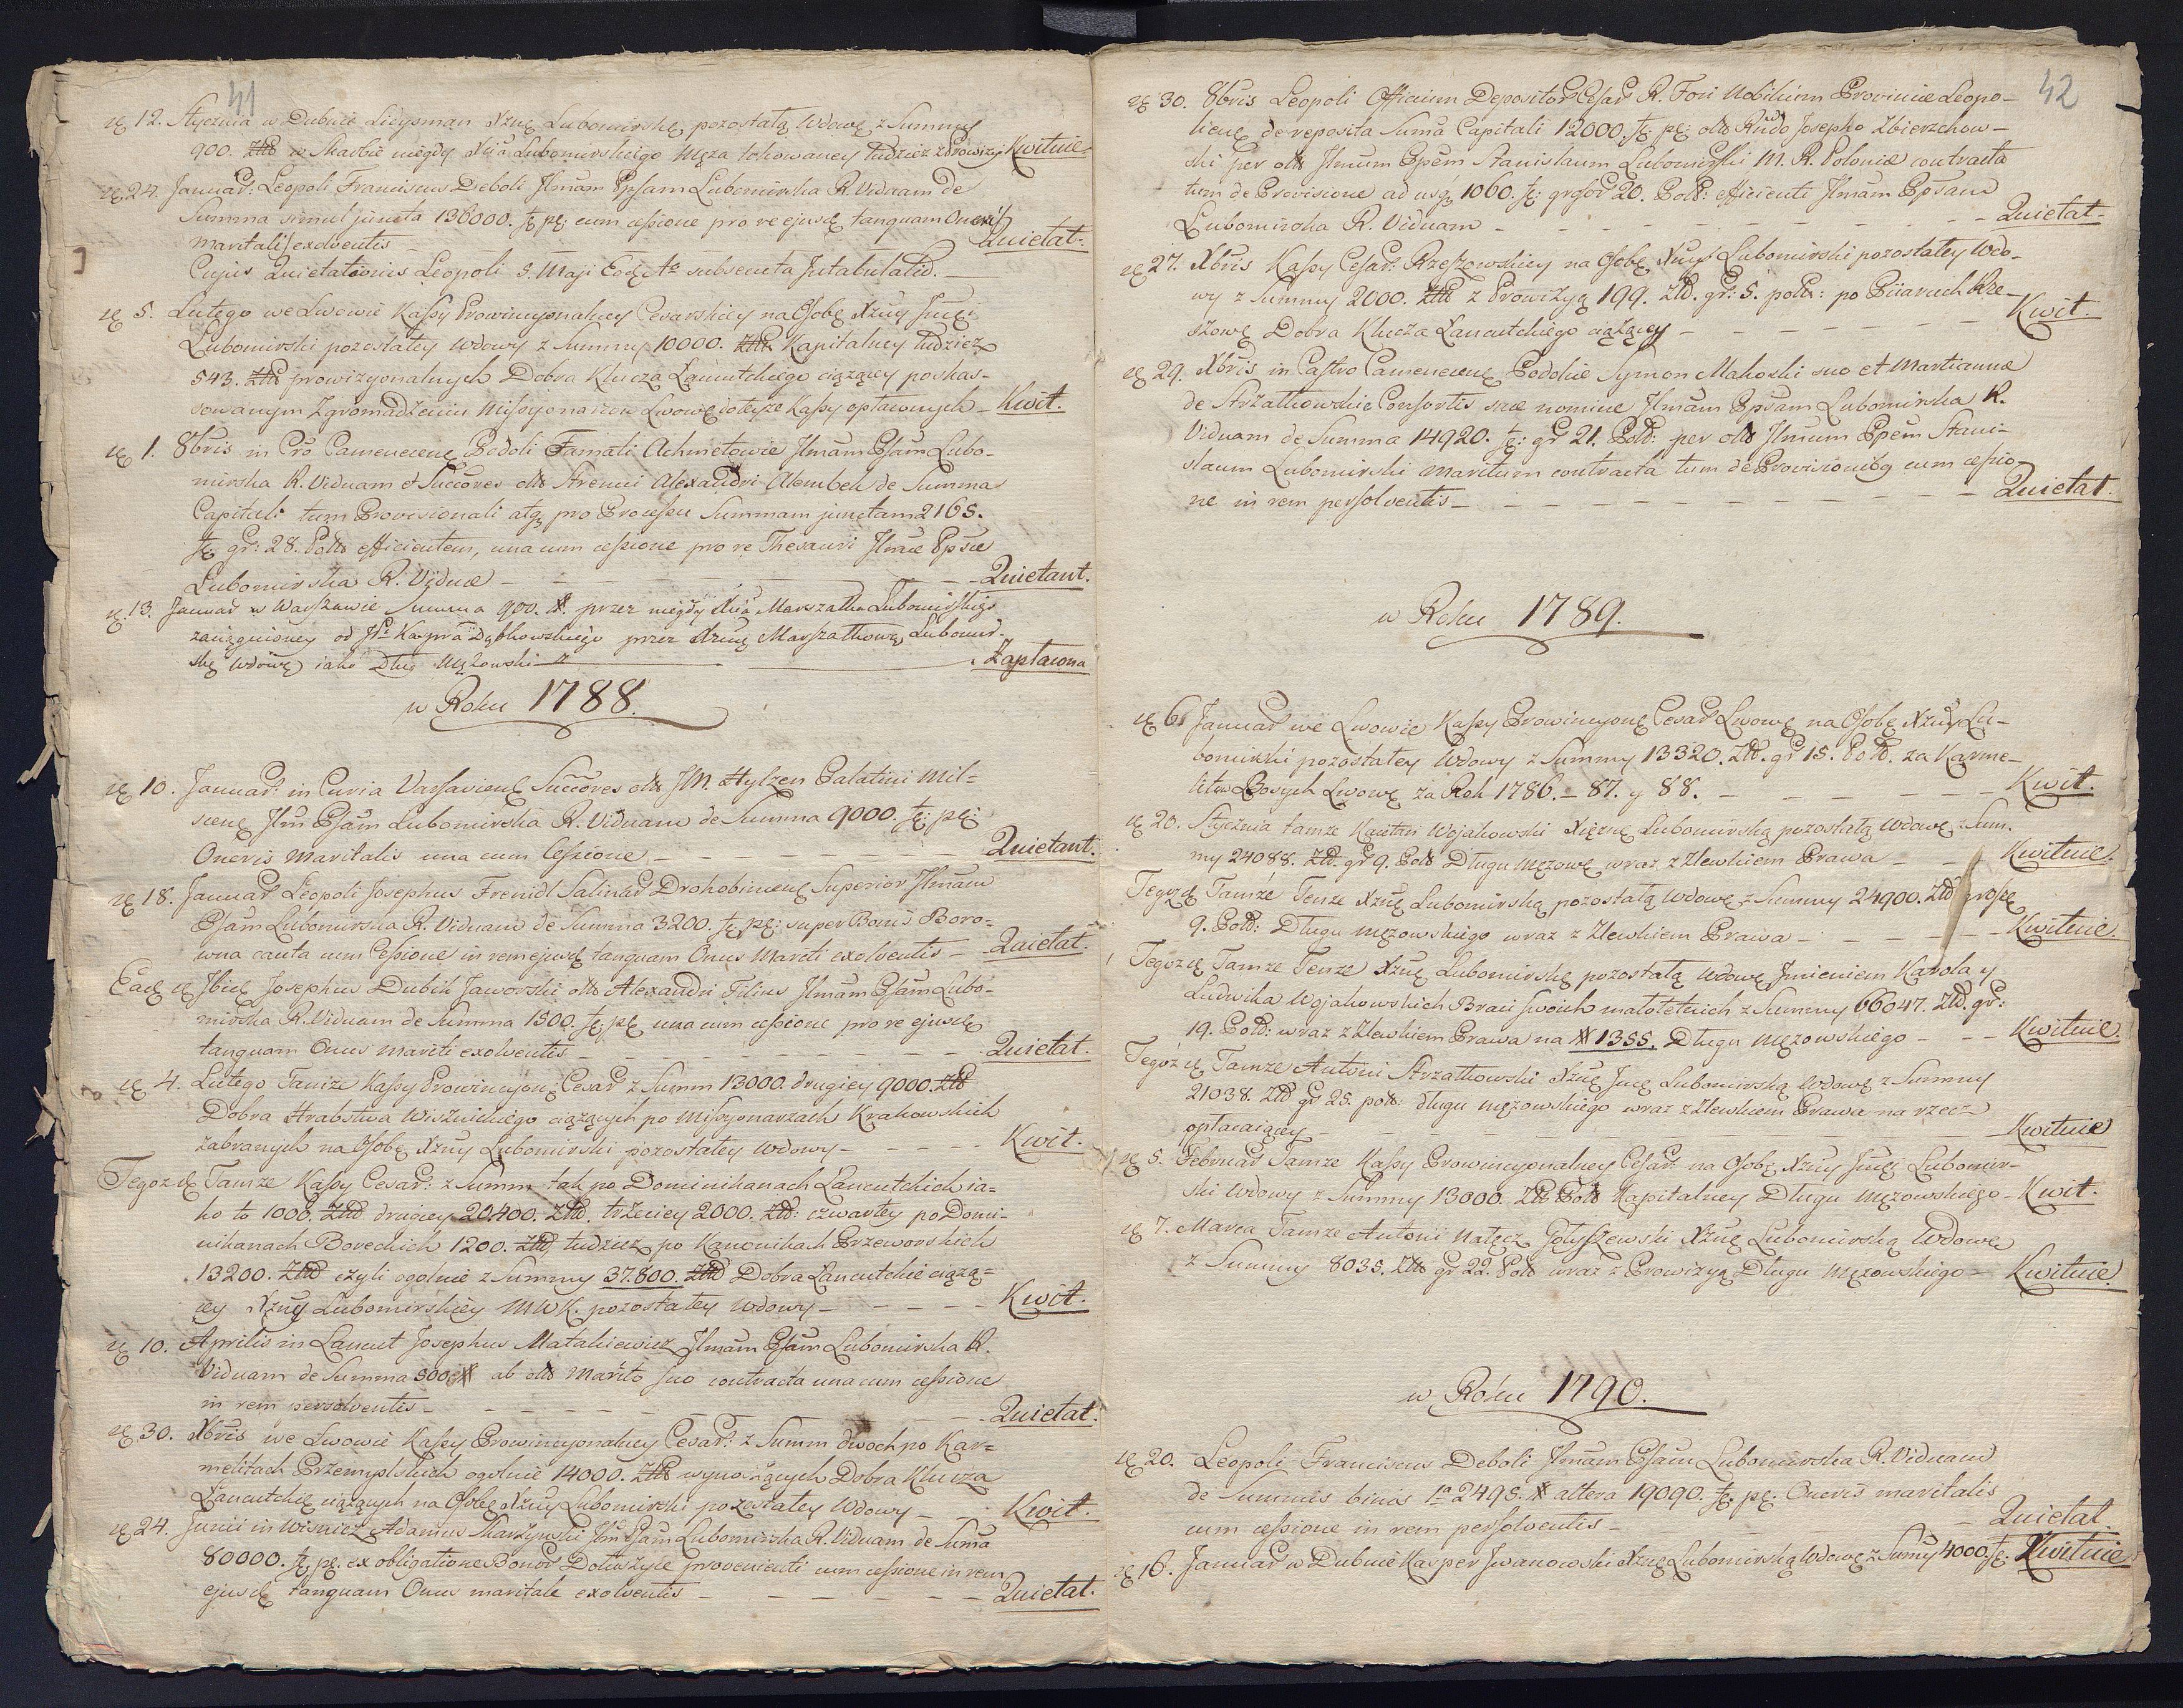 41
12. Stycznia w Dubnie Xżnę Lubomirską pozostałą Wdowę z Summy
900. w Skarbie niegdy Xcia Lubomirskiego Męża lokowaney tudzież z Prowizyi Kwituie.
24. Januar: Leopoli Franciscus Deboli Jlmam Lubomirska R. Viduam de
Summa simul juncta 136000. cum cessione pro re ejusd tanquam Oneris
maritalis exolventis Quietat.
Cujus Quietationis Leopoli Maji subsecuta Jntabulatio.
5. Lutego we Lwowie Kassy Prowincyonalney Cesarskiey na Osobę Xżny Jmci
Lubomirski pozostałey Wdowy z Summy 10000. Kapitalney tudzież
543. prowizyonalnych Dobra Klucza Łancutckiego ciążącey po skas-
sowanym Zgromadzeniu Missyonarzow do teyże Kassy opłaconych - Kwit.
1. 8bris in Podoli Jlmam Lubo-
mirska R. Viduam et Alexandri de Summa
Capitali tum Provisionali pro Processu Summam junctam 2165.
gr: 28. Polo efficientem, una cum cessione pro re Thesauri Jlmae
Lubomirska R. Viduae - Quietant.
13. Januar w Warszawie Summa 900. przez niegdy Xcia Marszałka Lubomirskiego
zaciągnioney od przez Xżnę Marszałkową Lubomir-
ską Wdowę iako Dług Mężowski Zapłacona
w Roku 1788.
10. Januar: in Curia Varsaviens Hylzen Palatini Mil=
scens Lubomirska R. Viduam de Summa 9000.
Oneris Maritalis una cum Cessione - Quietant.
18. Januar Leopoli Josephus Salinar Superior Jlmam
Lubomirska R. Viduam de Summa 3200. super Bonis Boro=
wna cauta cum Cessione in rem ejusd tanquam Onus Mariti exolventis - Quietat.
Josephus Dubik Jaworski Alexandri Filius Jlmam Lubo-
mirska R. Viduam de Summa 1500. una cum cessione pro re ejusd
tanquam Onus mariti exolventis - Quietat.
4. Lutego Tamże Kassy Cesar z Summ 13000. drugiey 9000.
Dobra Hrabstwa Wisznickiego ciążących po Missyonarzach Krakowskich
zabranych na Osobę Xżny Lubomirski pozostałey Wdowy - Kwit.
Tegoż Tamże Kassy Cesar: z Summ tak po Dominikanach Łancutckich ia=
ko to 1000. drugiey 20400. trzeciey 2000. czwartey po Domi-
nikanach Boreckich 1200. tudzież po Kanonikach Przeworskich
13200. czyli ogolnie z Summy 37.800. Dobra Łancutckie ciążą=
cey Xżny Lubomirskiey M.W.K. pozostałey Wdowy - Kwit.
10. Aprilis in Lancut Josephus Matakiewicz Jlmam Lubomirska R.
Viduam de Summa 500. ab Marito suo contracta una cum cessione
in rem persolventis - Quietat.
30. Xbris we Lwowie Kassy Prowincyonalney Cesar: z Summ dwoch po Kar=
melitach Przemyslskich ogolnie 14000. wynoszących Dobra Klucza
Łancutckie ciążących na Osobę Xżny Lubomirski pozostałey Wdowy - Kwit.
24. Junii in Wisnicz Adamus Lubomirska R. Viduam de Suma
80000. ex obligatione Bonor provenienti cum cessione in rem
ejusd tanquam Onus maritale exolventis - Quietat.
42
30. 8bris Leopoli Officium Deposito Cesar R. Fori Nobilium Provinciae Leopo-
liens de reposita Suma Capitali 12000. Josepho Zbierzchow-
ski per Jlmum Stanislaum Lubomirski M. R. Poloniae contracta
tum de Provisione ad usq 1060. gr 20. Polo: efficienti Jlmam
Lubomirska R. Viduam - Quietat.
27. Xbris Kassy Cesar: Rzeszowskiey na Osobę Xżny Lubomirski pozostałey Wdo-
wy z Summy 2000. z Prowizyą 199. Złd. gr: 5. po Piiarach Rze-
szow Dobra Klucza Łancutckiego ciążącey - Kwit.
29. Xbris in Castro Podoliae Symon Makoski suo et Martiannae
de Strzałkowskie Consortis suae nomine Jlmam Lubomirska R.
Viduam de Summa 14920. gr 21. Pold: per Jlmum Stani-
slaum Lubomirski maritum contracta tum de Provisionibq cum cessio-
ne in rem persolventis - Quietat.
w Roku 1789.
6 Januar we Lwowie Kassy Prowincyon Cesar Lwow na Osobę Xżny Lu-
bomirski pozostałey Wdowy z Summy 13320. Złd. gr 15. Pold. za Karme-
litow Bosych Lwow za Rok 1786. - 87. y 88. - Kwit.
20. Stycznia tamże Kaietan Wojakowski Xiężnę Lubomirską pozostałą Wdowę z Sum-
my 24088. Złd. gr 9. Pold Długu Mężow wraz z Zlewkiem Prawa - Kwituie.
Tegoż Tamże Tenże Xżnę Lubomirską pozostałą Wdowę z Summy 24900. Złd
9. Pold: Długu mężowskiego wraz z Zlewkiem Prawa - Kwituie.
Tegoż Tamże Tenże Xżnę Lubomirską pozostałą Wdowę Jmieniem Karola y
Ludwika Wojakowskich Braci swoich małoletnich z Summy 66047. Złd. gr:
19. Pold: wraz z Zlewkiem Prawa na 1355. Długu mężowskiego - Kwituie.
Tegoż Tamże Antoni Strzałkowski Xżnę Jmę Lubomirską Wdowę z Summy
21038. Złd gr 25. pold: długu mężowskiego wraz z Zlewkiem Prawa na rzecz
opłacaiącey - Kwituie
5. Februar Tamże Kassy Prowincyonalney Cesar: na Osobę Xżny Jmci Lubomir-
ski Wdowy z Summy 13000. Kapitalney Długu Mężowskiego - Kwit.
7. Marca Tamże Antoni Nałęcz Xżnę Lubomirską Wdowę
z Summy 8035. gr 22. Pold wraz z Prowizyą Długu Mężowskiego - Kwituie.
w Roku 1790.
20. Leopoli Franciscus Deboli Jlmam Lubomirska R. Viduam
de Summis binis 1a 2495. altera 19090. Oneris maritalis
cum cessione in rem persolventis - Quietat
16. Januar w Dubnie Kasper Jwanowski Xżnę Lubomirską Wdowę z Sumy 4000. Kwituie